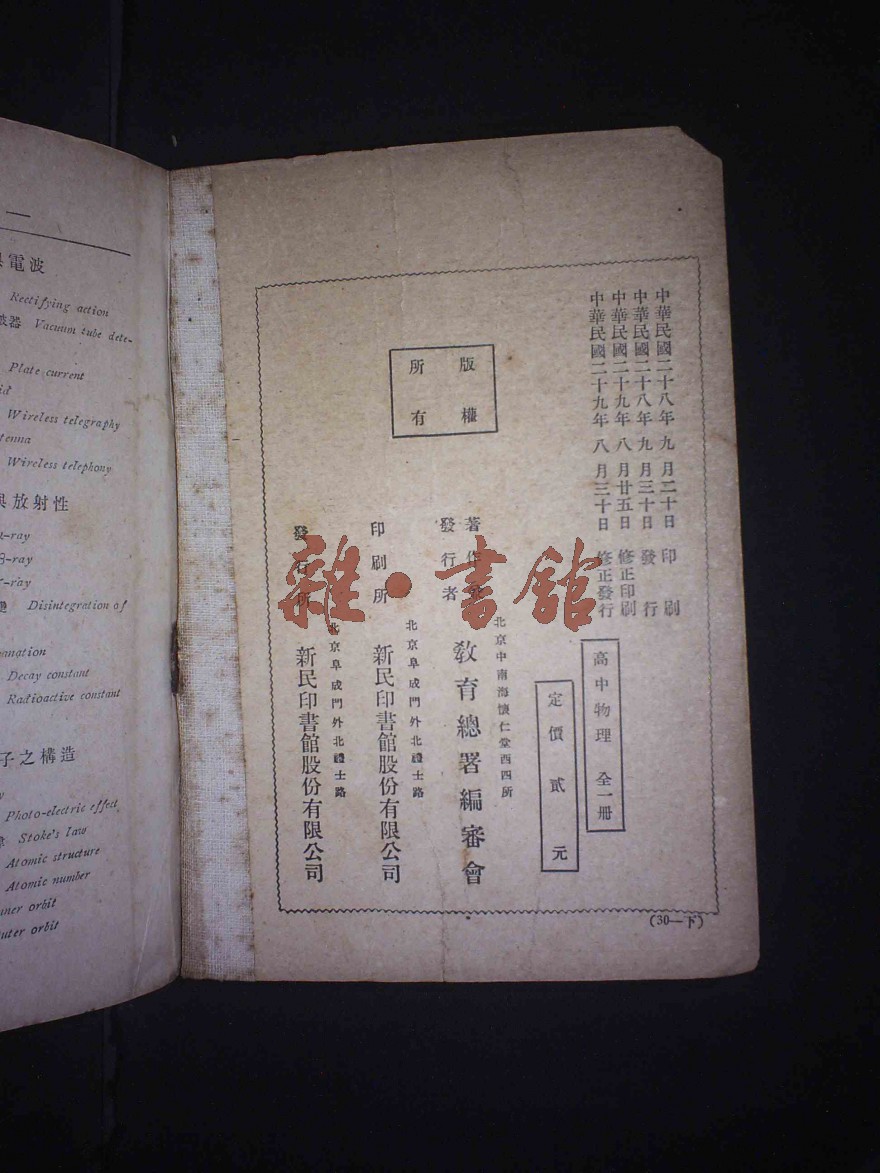 中華民國二十八年九月二十日 印刷
中華民國二十八年九月三十日 發行
中華民國二十九年八月廿五日 修正印刷
中華民國二十九年八月三十日 修正發行
高中物理 全一冊
定價貳元
版權
所有
北京中南海懷仁堂西四所
著作
發行者
教育總署編審會
北京阜成門外北禮士路
印刷所 新民印書館股份有限公司
北京阜成門外北禮士路
發行所 新民印書館股份有限公司
(30—下)
雜·書館
一
電波
Rectifying action
波器 Vacuum tube dete-
Plate current
Wireless telegraphy
Wireless telephony
與放射性
-ray
β-ray
-ray
Disintegration of
Decay constant
Radioactive constant
子之構造
Photo-electric effect
Stoke's law
Atomic structure
Atomic number
orbit
orbit